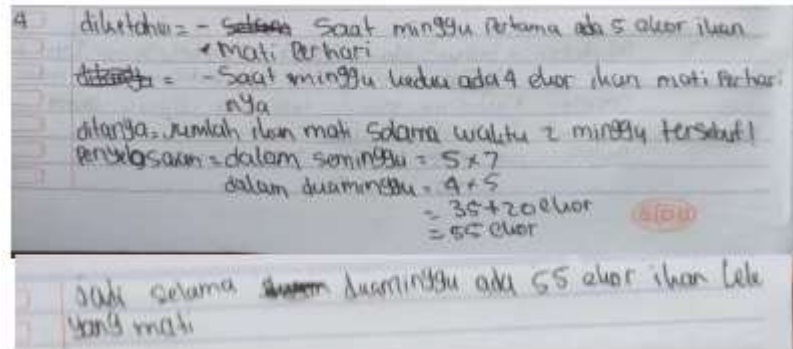 4 diketahui = - Saat minggu Pertama ada 5 ekor ikan
mati Perhari
= - Saat minggu kedua ada 4 ekor ikan mati Perhari
nya
ditanya = Jumlah ikan mati selama waktu 2 minggu tersebut!
Penyelesaian = dalam seminggu = 5 x 7
dalam duaminggu = 4 + 5
= 35 + 20 ekor
= 55 ekor
Jadi selama duaminggu ada 55 ekor ikan lele
yang mati